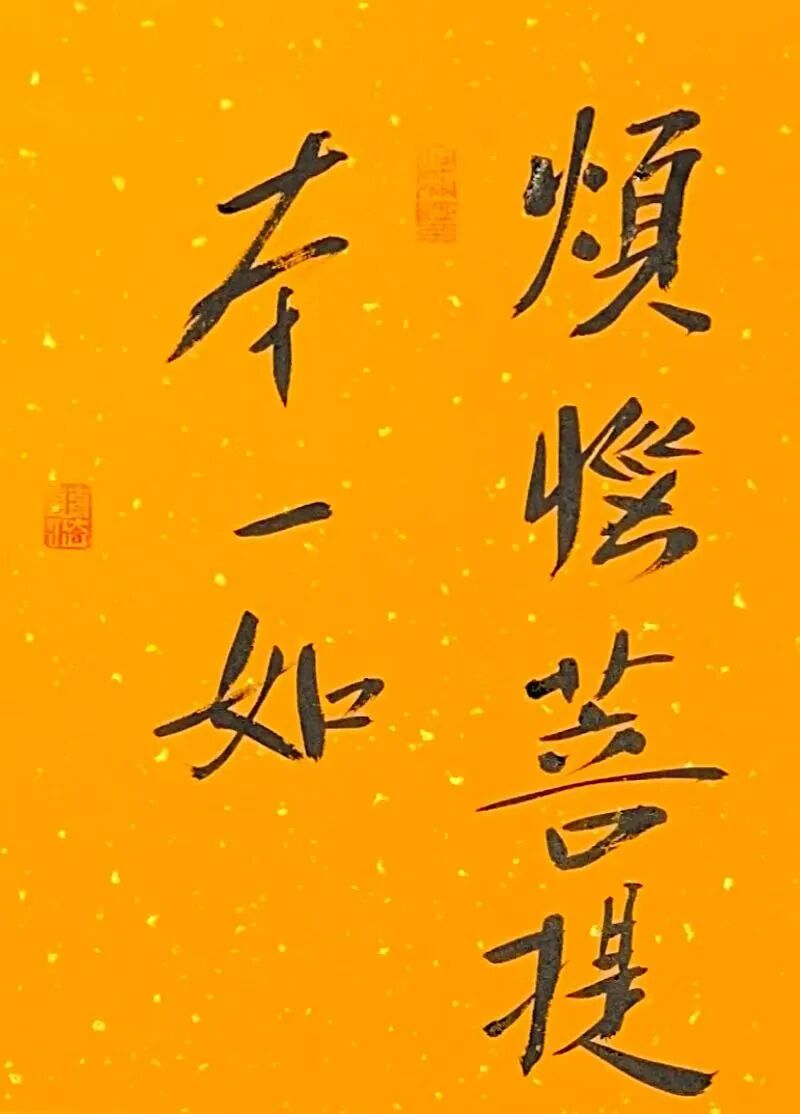 煩惱菩提
本一如